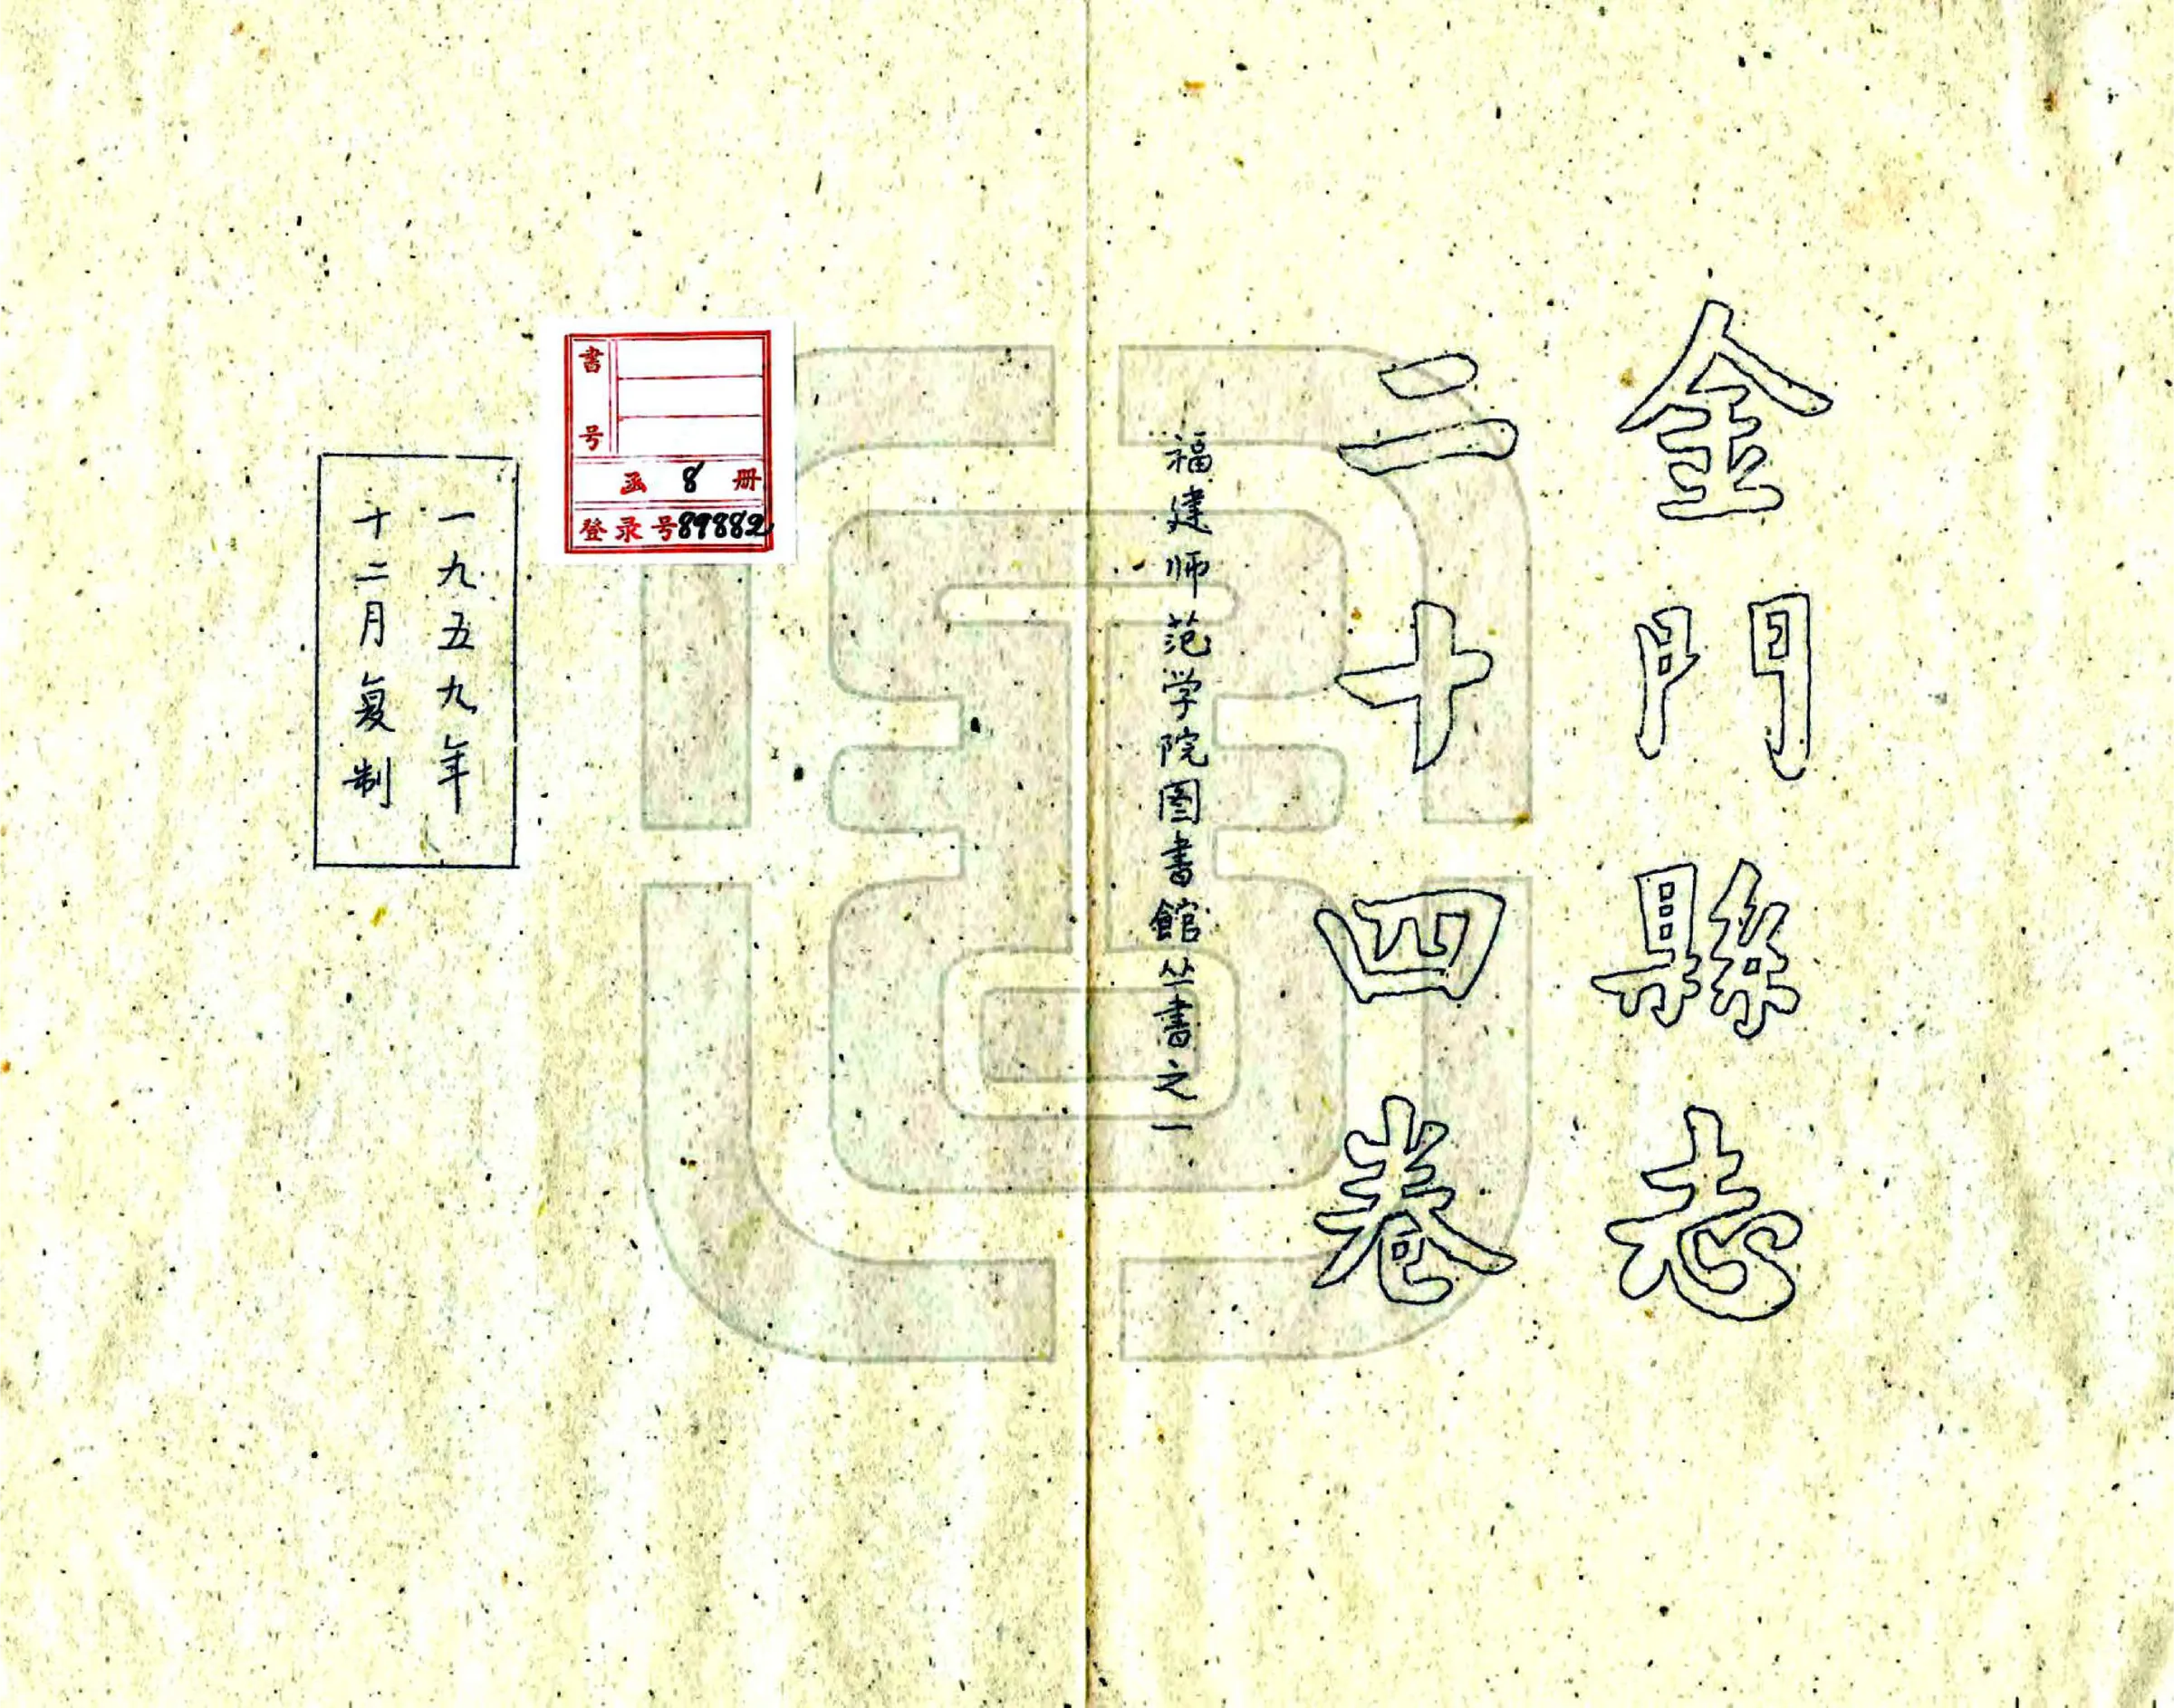 金門縣志
二十四卷
福建师范学院圖書館丛書之一
書号
函 8 册
登录号89882
一九五九年
十二月复制